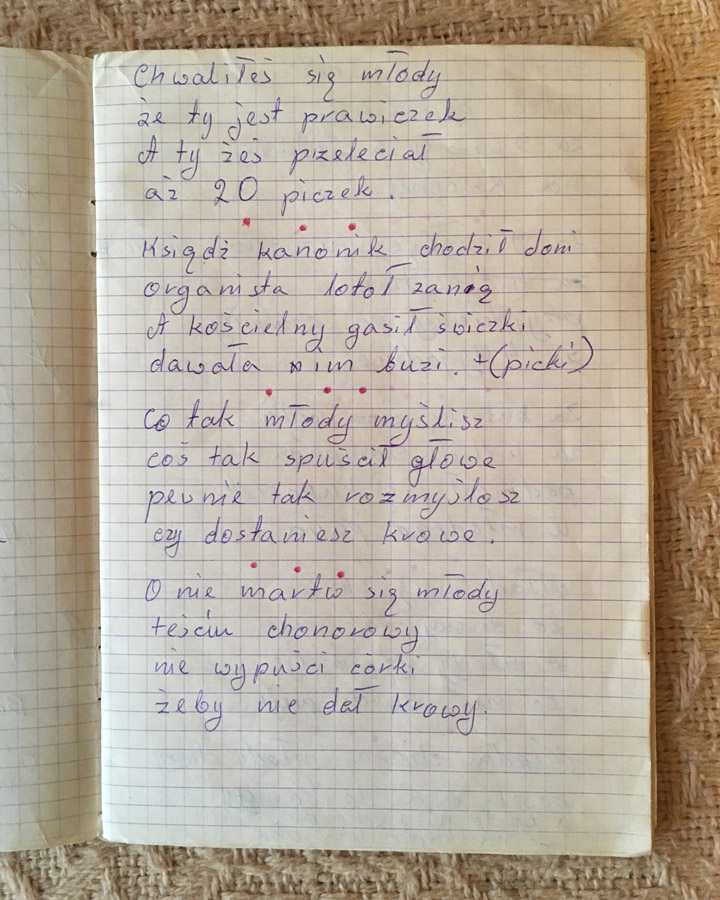 Chwaliłeś się młody
że ty jest prawiczek
A ty żeś przeleciał
aż 20 piczek.
Ksiądź kanonik chodził doni
organista lotoł zanią
A kościelny gasił świczki
dawała nim buzi. +(picki)
Co tak młody myślisz
coś tak spuścił głowe
pewnie tak rozmyślosz
czy dostaniesz krowe.
O nie martw się młody
teściu chonorowy
nie wypuści córki
żeby nie dał krowy.